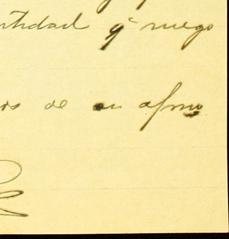 ntidad q̃ ruego
os de su afmo